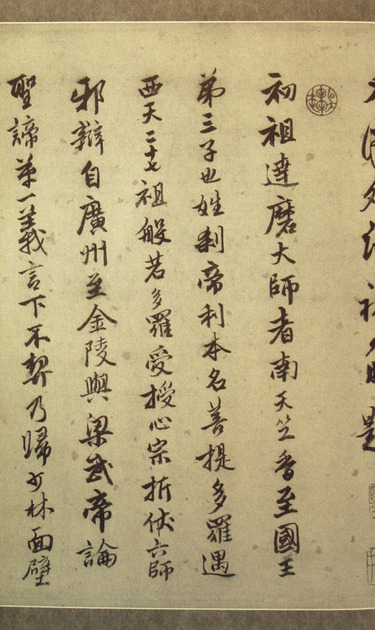 初祖達磨大師者南天竺香至國王
第三子也姓刹帝利本名菩提多羅遇
西天二十七祖般若多羅受授心宗折伏六師
邪辯自廣州至金陵與梁武帝論
聖諦第一義言下不契乃歸少林面壁